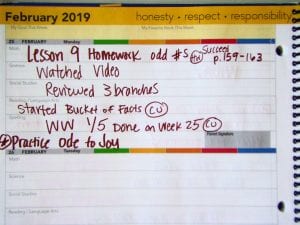 February 2019 honesty • respect • responsibility
My Goal This Week: My Favorite Book This Week:
25 FEBRUARY Monday
Math Lesson 9 Homework odd #s HW Succeed p.159-163
Science Watched Video
Social Studies Reviewed 3 branches
Reading / Language Arts Started Bucket of Facts CU
Spelling WW 1/5 Done on Week 25 CU
Practice Ode to Joy
Parent Signature
26 FEBRUARY Tuesday
Math
Science
Social Studies
Reading / Language Arts